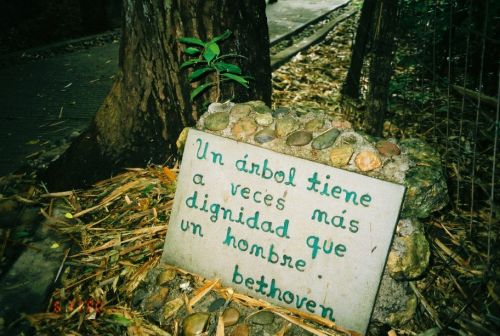 Un árbol tiene
a veces más
dignidad que
un hombre
bethoven